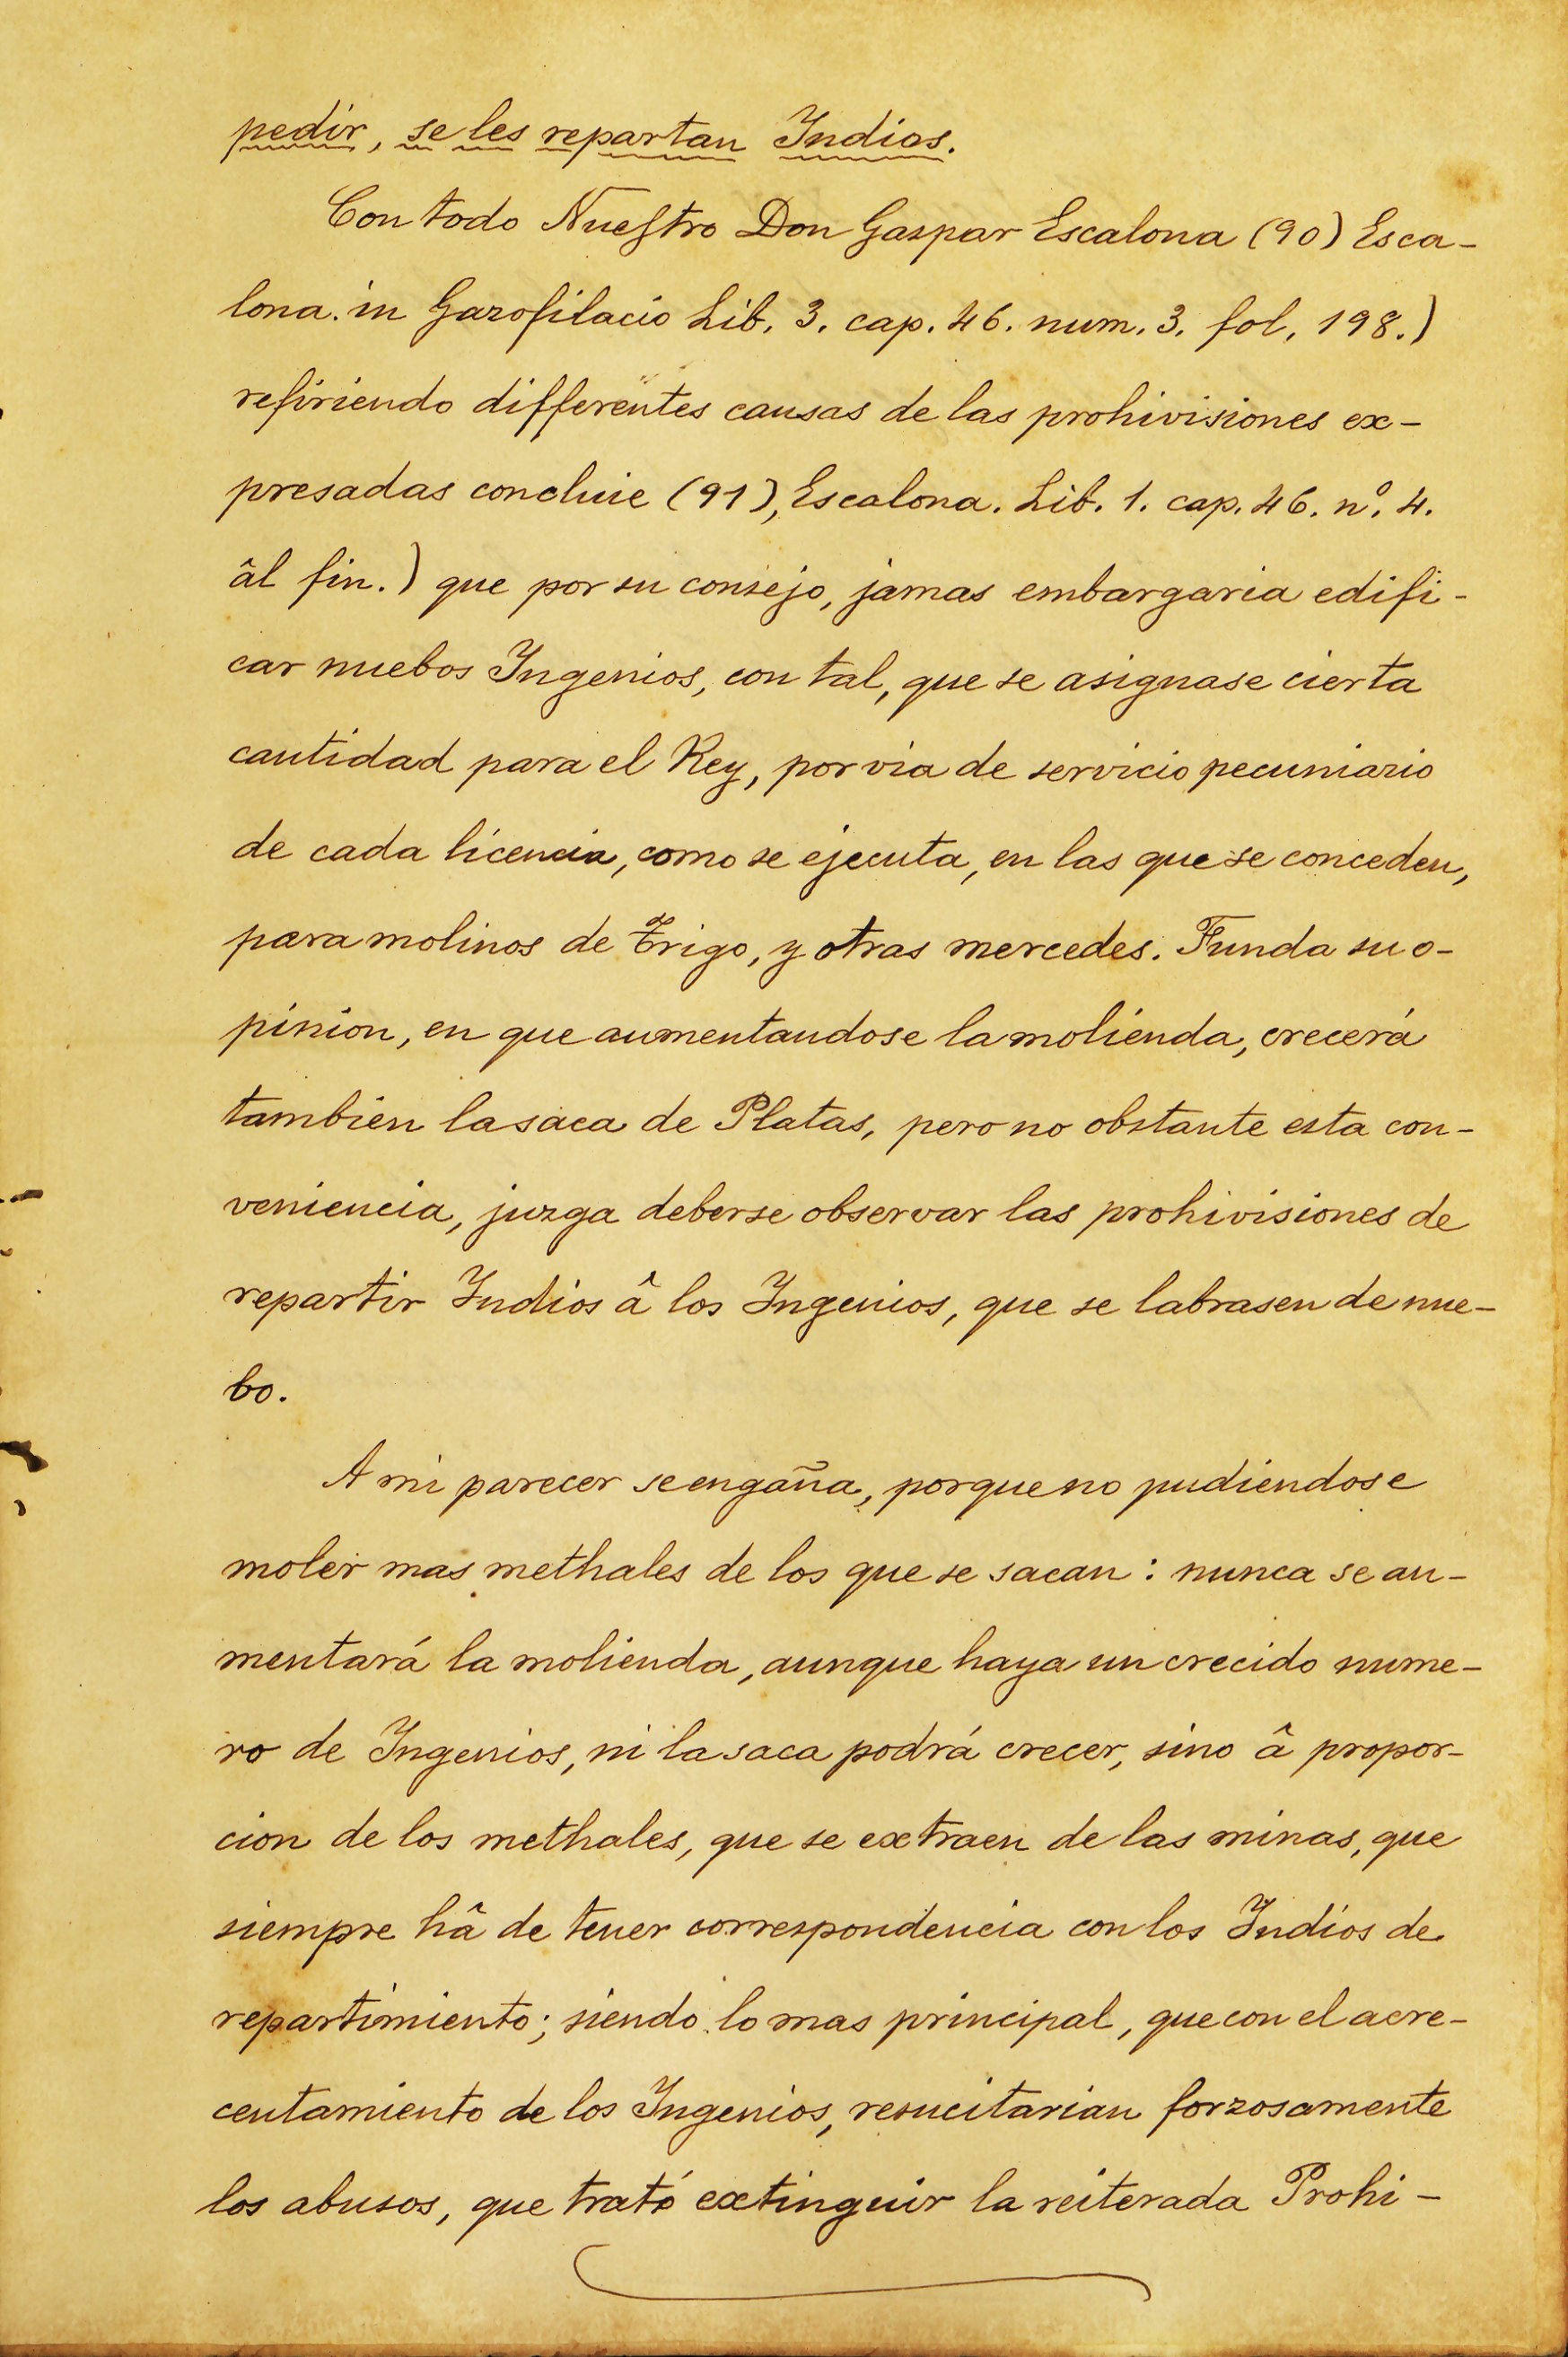 pedir, se les repartan Indios.
Con todo Nuestro Don Gaspar Escalona (90) Esca-
lona. in Gazofilacio Lib. 3. cap. 46. num. 3. fol. 198.)
refiriendo differentes causas de las prohivisiones ex-
presadas concluie (91), Escalona. Lib. 1. cap. 46. nº. 4.
âl fin.) que por su consejo, jamas embargaria edifi-
car nuebos Ingenios, con tal, que se asignase cierta
cantidad para el Rey, por via de servicio pecuniario
de cada licencia, como se ejecuta, en las que se conceden,
para molinos de Trigo, y otras mercedes. Funda su o-
pinion, en que aumentandose la molienda, crecerá
tambien la saca de Platas, pero no obstante esta con-
veniencia, juzga deberse observar las prohivisiones de
repartir Indios â los Ingenios, que se labrasen de nue-
bo.
A mi parecer se engaña, porque no pudiendose
moler mas methales de los que se sacan: nunca se au-
mentará la molienda, aunque haya un crecido nume-
ro de Ingenios, ni la saca podrá crecer, sino â propor-
cion de los methales, que se extraen de las minas, que
siempre hâ de tener correspondencia con los Indios de
repartimiento; siendo lo mas principal, que con el acre-
centamiento de los Ingenios, resucitarian forzosamente
los abusos, que trató extinguir la reiterada Prohi-